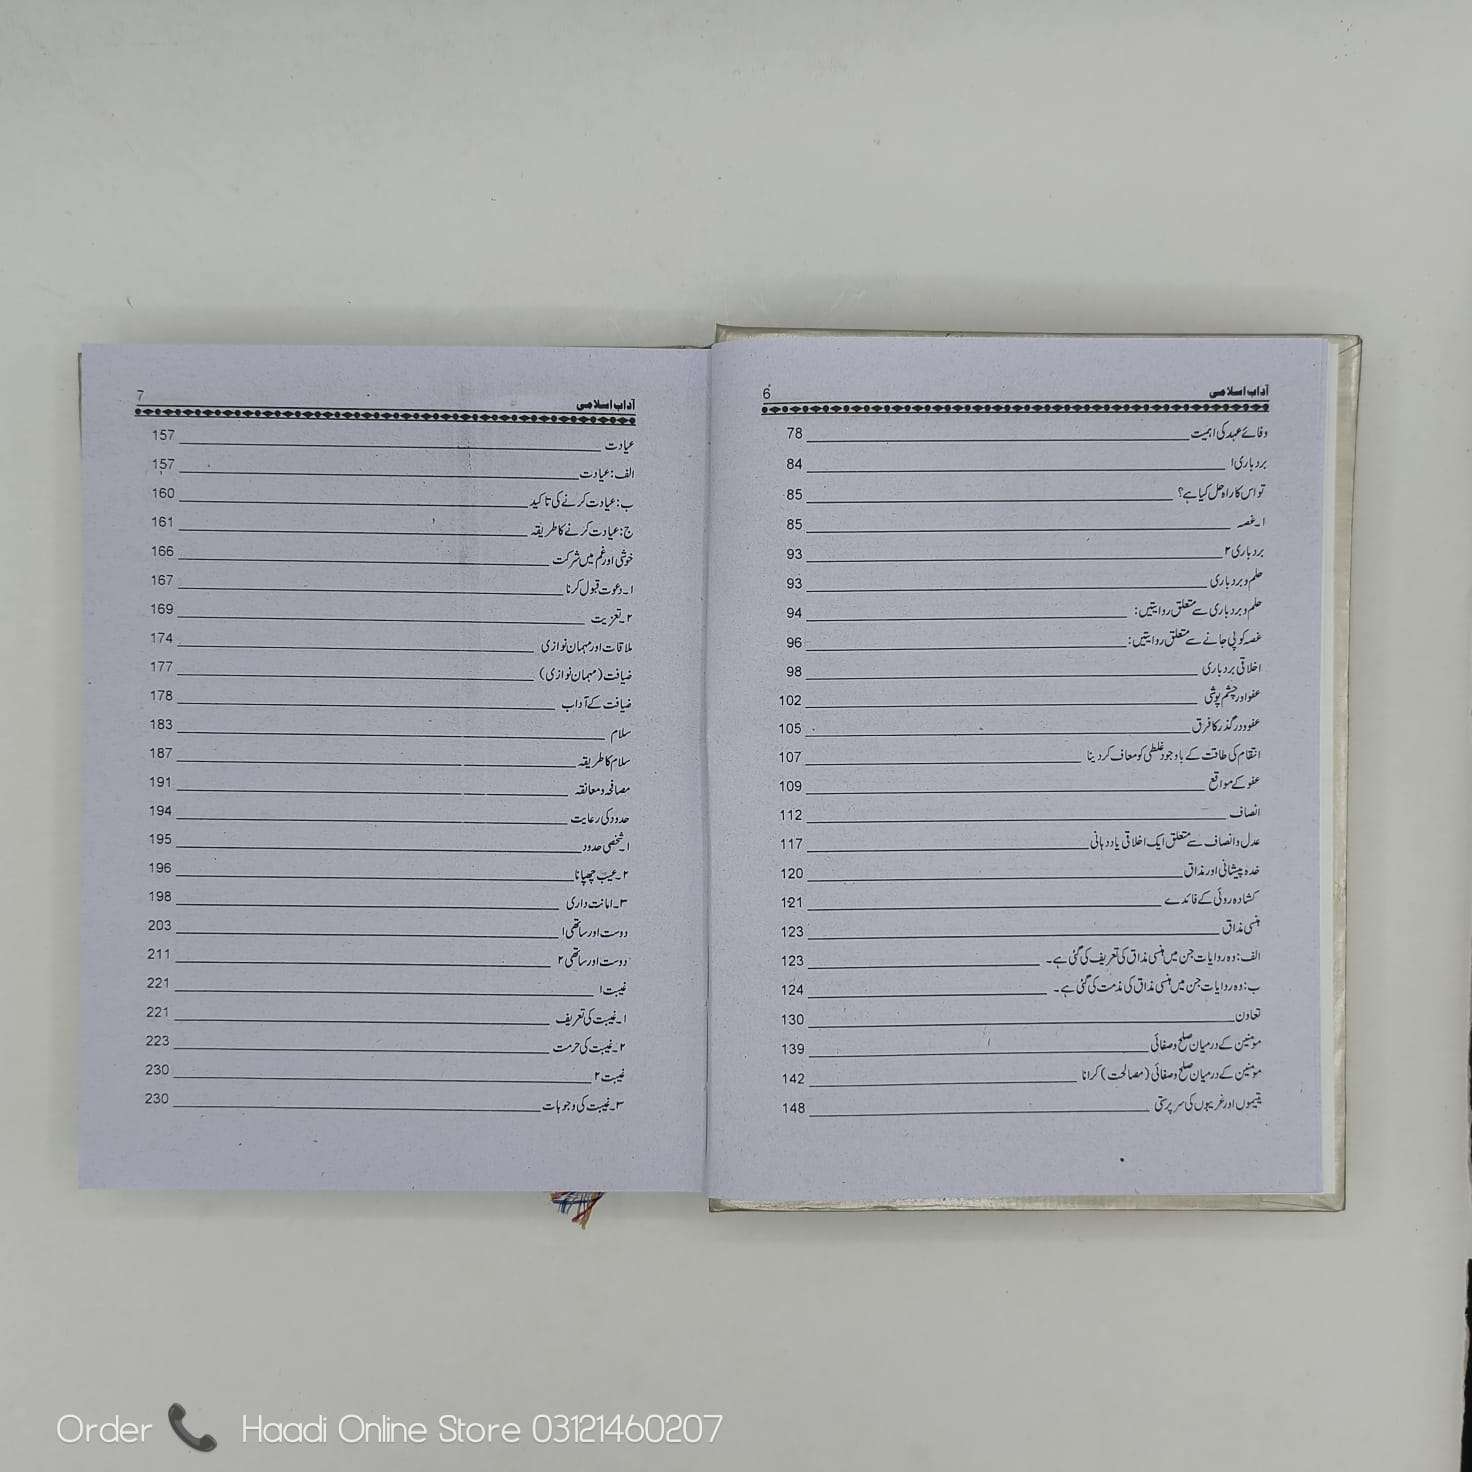 آداب اسلامی 6
وفائے عہد کی اہمیت 78
بردباری ۱ 84
تو اس کا راہ حل کیا ہے؟ 85
۱۔ غصہ 85
بردباری ۲ 93
حلم و بردباری 93
حلم و بردباری سے متعلق روایتیں: 94
غصہ کو پی جانے سے متعلق روایتیں: 96
اخلاقی بردباری 98
عفو اور چشم پوشی 102
عفو و درگذر کا فرق 105
انتقام کی طاقت کے باوجود غلطی کو معاف کر دینا 107
عفو کے مواقع 109
انصاف 112
عدل و انصاف سے متعلق ایک اخلاقی یاد دہانی 117
خندہ پیشانی اور مذاق 120
کشادہ روئی کے فائدے 121
ہنسی مذاق 123
الف: وہ روایات جن میں ہنسی مذاق کی تعریف کی گئی ہے۔ 123
ب: وہ روایات جن میں ہنسی مذاق کی مذمت کی گئی ہے۔ 124
تعاون 130
مومنین کے درمیان صلح و صفائی 139
مومنین کے درمیان صلح و صفائی (مصالحت) کرانا 142
یتیموں اور غریبوں کی سرپرستی 148
آداب اسلامی 7
عیادت 157
الف: عیادت 157
ب: عیادت کرنے کی تاکید 160
ج: عیادت کرنے کا طریقہ 161
خوشی اور غم میں شرکت 166
۱۔ دعوت قبول کرنا 167
۲۔ تعزیت 169
ملاقات اور مہمان نوازی 174
ضیافت (مہمان نوازی) 177
ضیافت کے آداب 178
سلام 183
سلام کا طریقہ 187
مصافحہ و معانقہ 191
حدود کی رعایت 194
۱۔ شخصی حدود 195
۲۔ عیب چھپانا 196
۳۔ امانت داری 198
دوست اور ساتھی ۱ 203
دوست اور ساتھی ۲ 211
غیبت ۱ 221
۱۔ غیبت کی تعریف 221
۲۔ غیبت کی حرمت 223
غیبت ۲ 230
۳۔ غیبت کی وجوہات 230
Order Haadi Online Store 03121460207